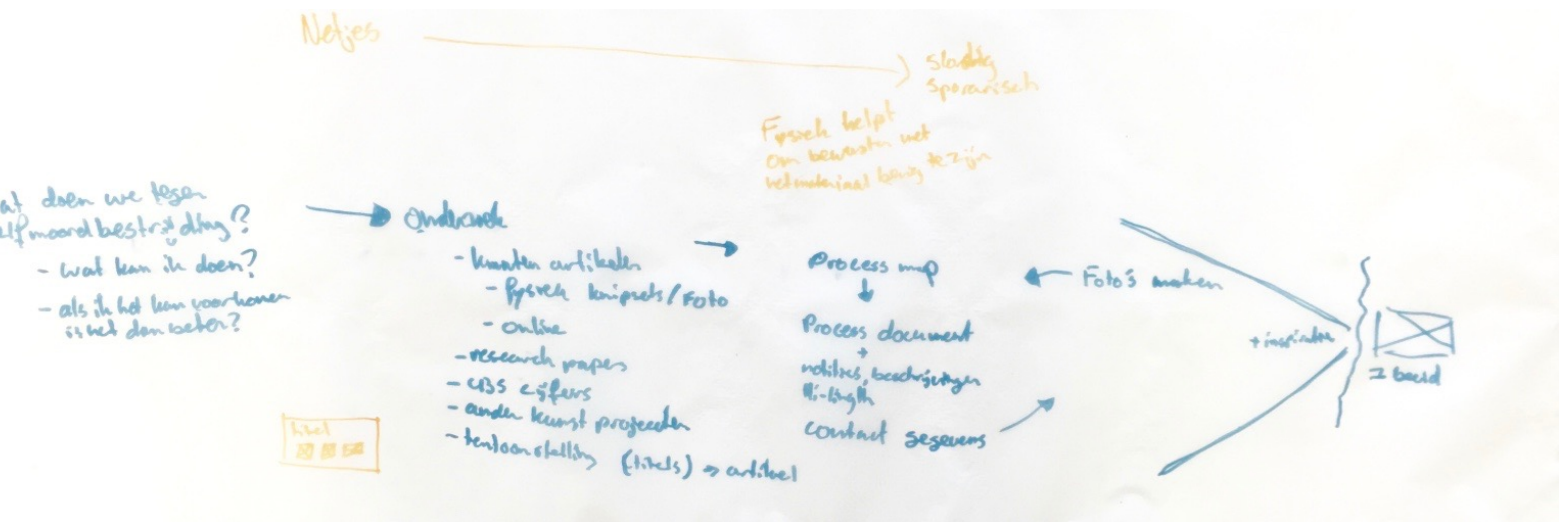 Netjes
slordig
sporarisch
Fysiek helpt
om bewuster met
het materiaal bezig te zijn
at doen we tegen
elfmoordbestrijding?
- wat kan ik doen?
- als ik het kan voorkomen
is het dan beter?
Onderzoek
- kranten artikelen
- fysiek knipsels/Foto
- online
- research papers
- CBS cijfers
- ander kunst projecten
- tentoonstelling (titels) → artikel
titel
Process map
Process document
+
notities, beschrijvingen
contact gegevens
Foto's maken
+ inspiratie
1 beeld